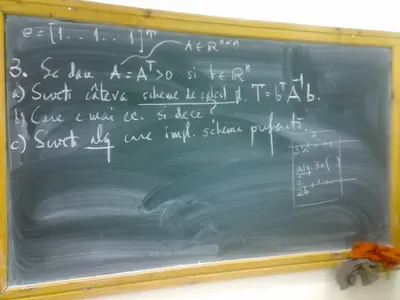 e = [1 . . 1 . . 1]ᵀ
A ∈ ℝⁿˣⁿ
3. Se dau A = Aᵀ > 0 si b ∈ ℝⁿ
a) Scrieti câteva scheme de calcul pt. T = bᵀA⁻¹b.
b) Care e mai ec. si de ce?
c) Scrieti alg care impl. schema preferată.
Alg. 3a( )